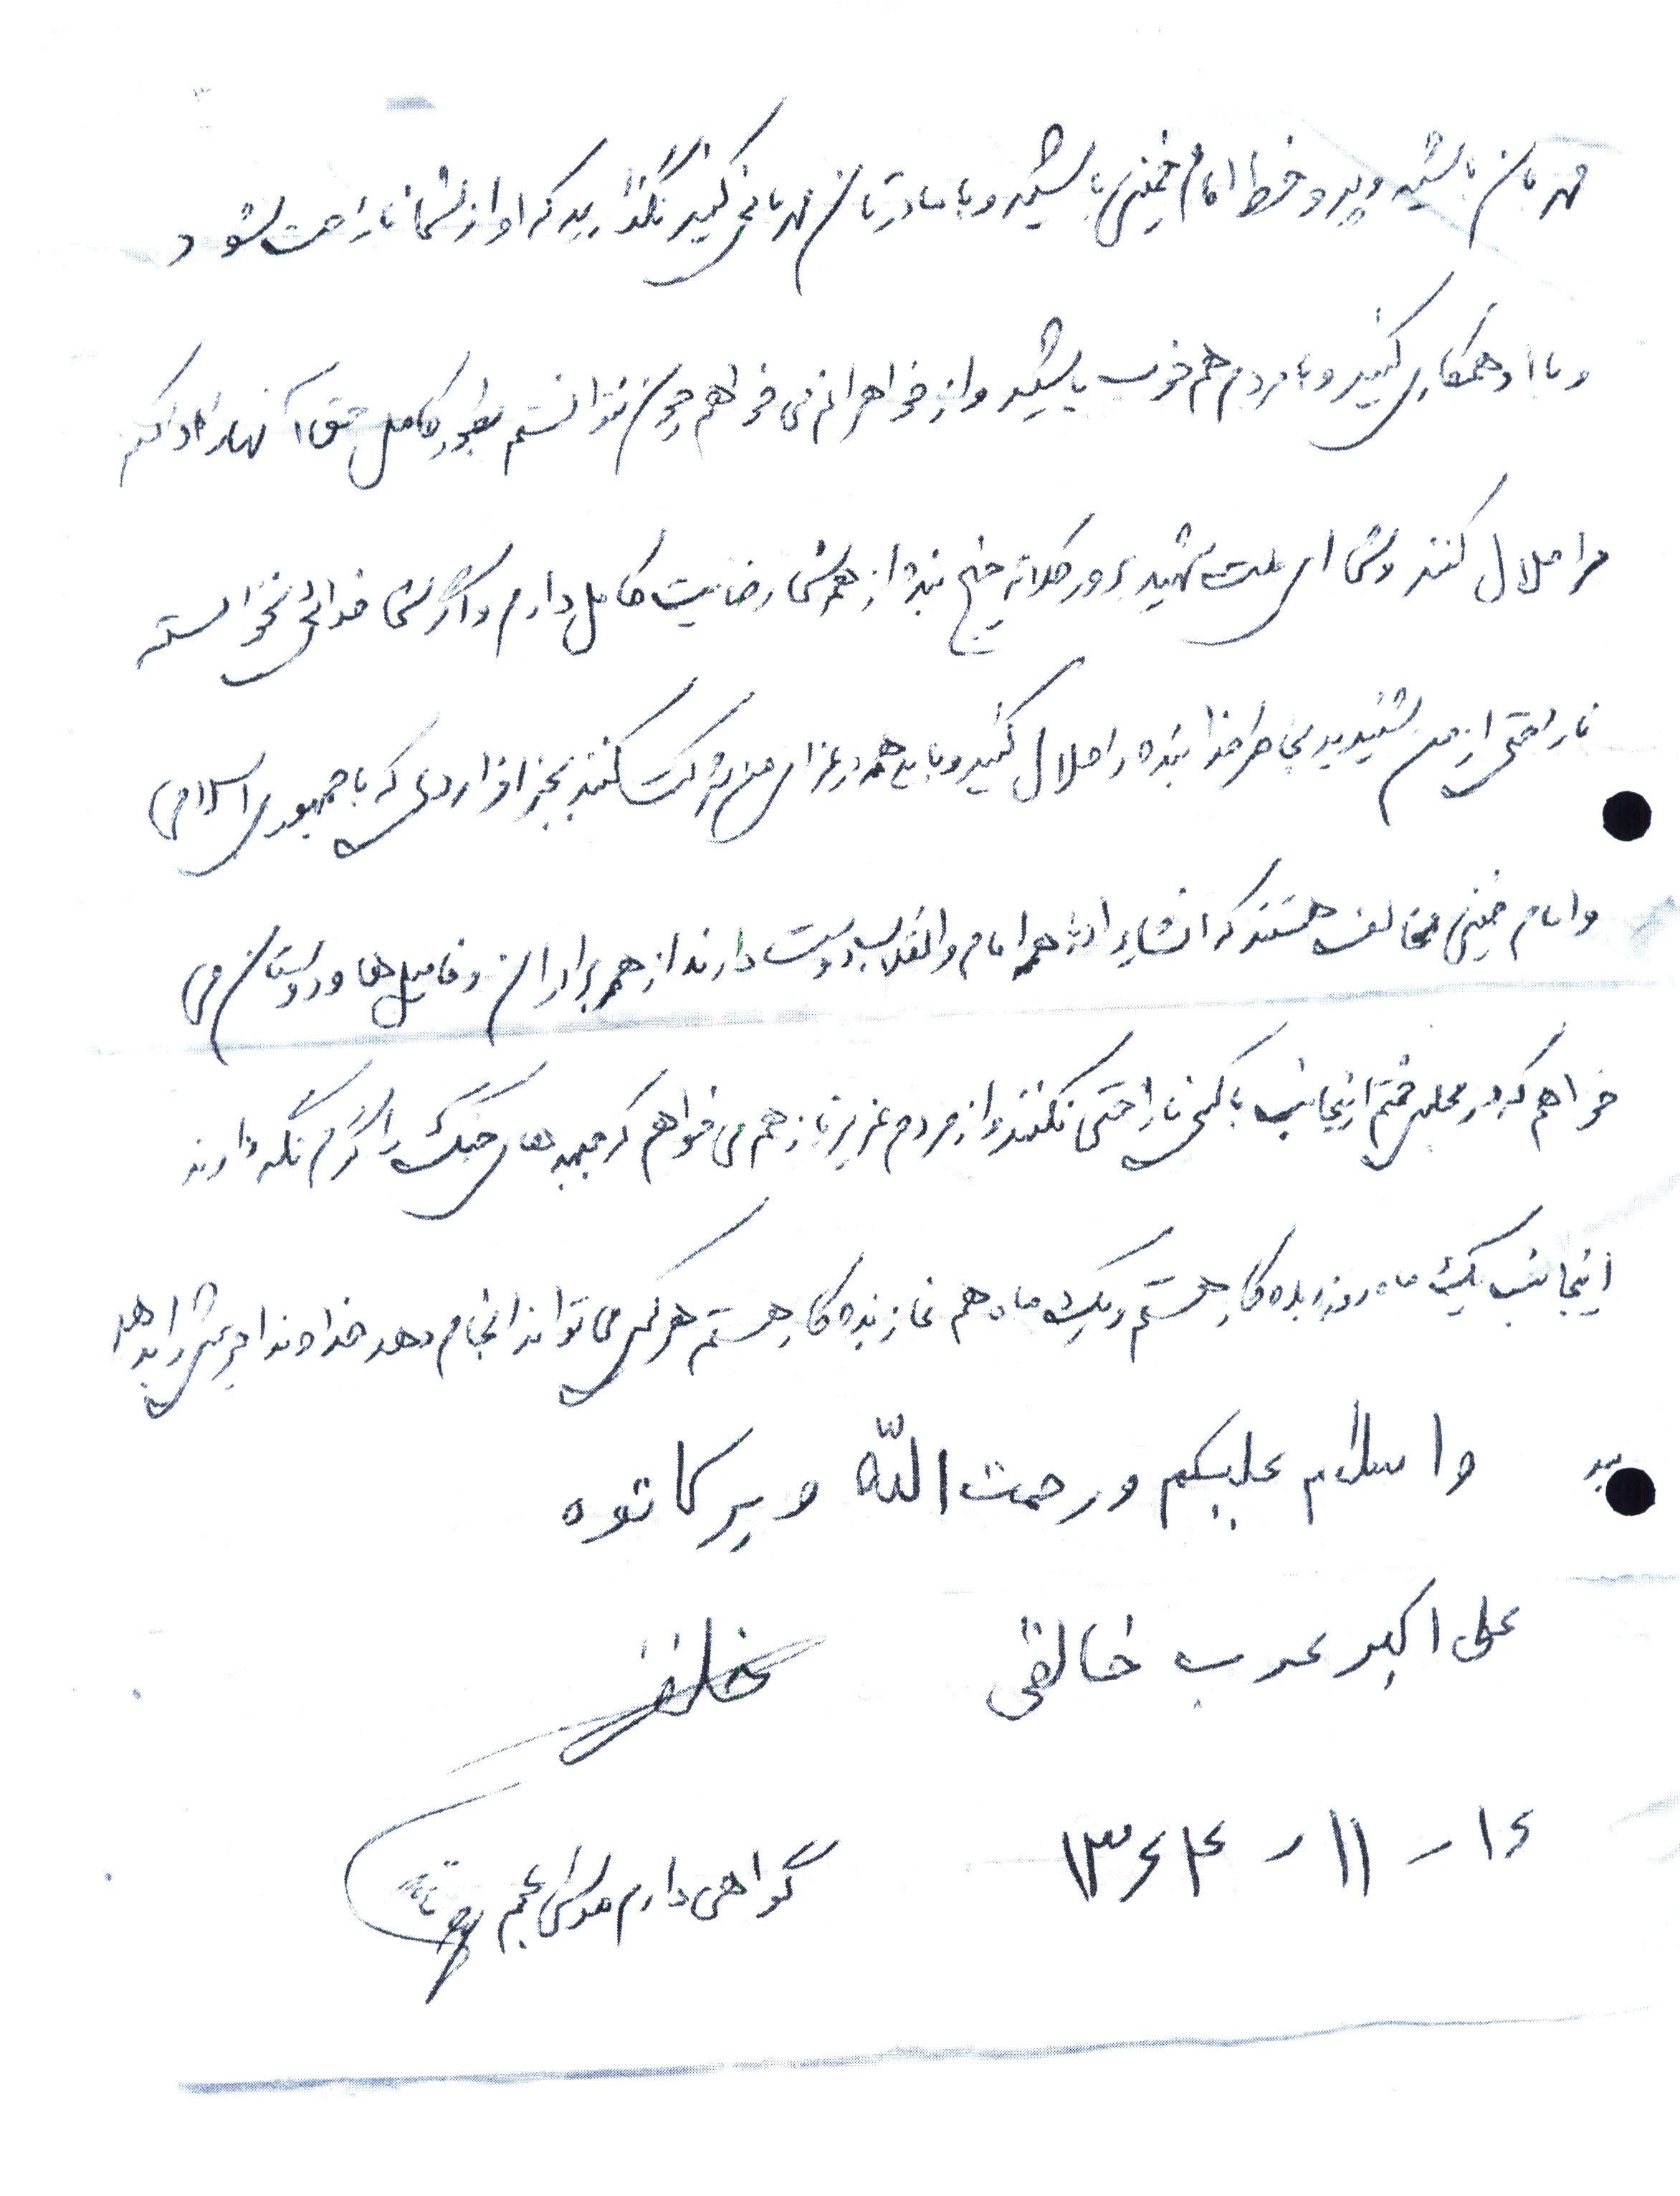 مهربان باشید و پیرو خط امام خمینی باشید و با مادرتان مهربانی کنید نگذارید که او از شما ناراحت شود
و با او همکاری کنید و با مردم هم خوب باشید و از خواهرانم می خواهم چون نتوانستم بطور کامل حق آنها را ادا کنم
مرا حلال کنند و شما ای ملت شهید پرور کلاته خیج بنده از همه شما رضایت کامل دارم و اگر شما خدائی نخواسته
ناراحتی از من شنیدید بخاطر خدا بنده را حلال کنید و باید همه در عزای من شرکت کنند بجز افرادی که با جمهوری اسلامی
و امام خمینی مخالف هستند که انشاء الله همه امام و انقلاب دوست دارند از همه برادران و فامیل ها و دوستان می
خواهم که در مجلس ختم اینجانب با کسی ناراحتی نکنند و از مردم عزیز باز هم می خواهم که جبهه های جنگ را گرم نگه دارند
اینجانب یک ماه روزه بدهکار هستم و یک ماه هم نماز بدهکار هستم هر کس می تواند انجام دهد خداوند اجرش را بدهد
واسلام علیکم ورحمت الله وبرکاتوه
علی اکبر عرب خالقی
۱۶-۱۱-۱۳۶۴
گواهی دارم موسی عجم